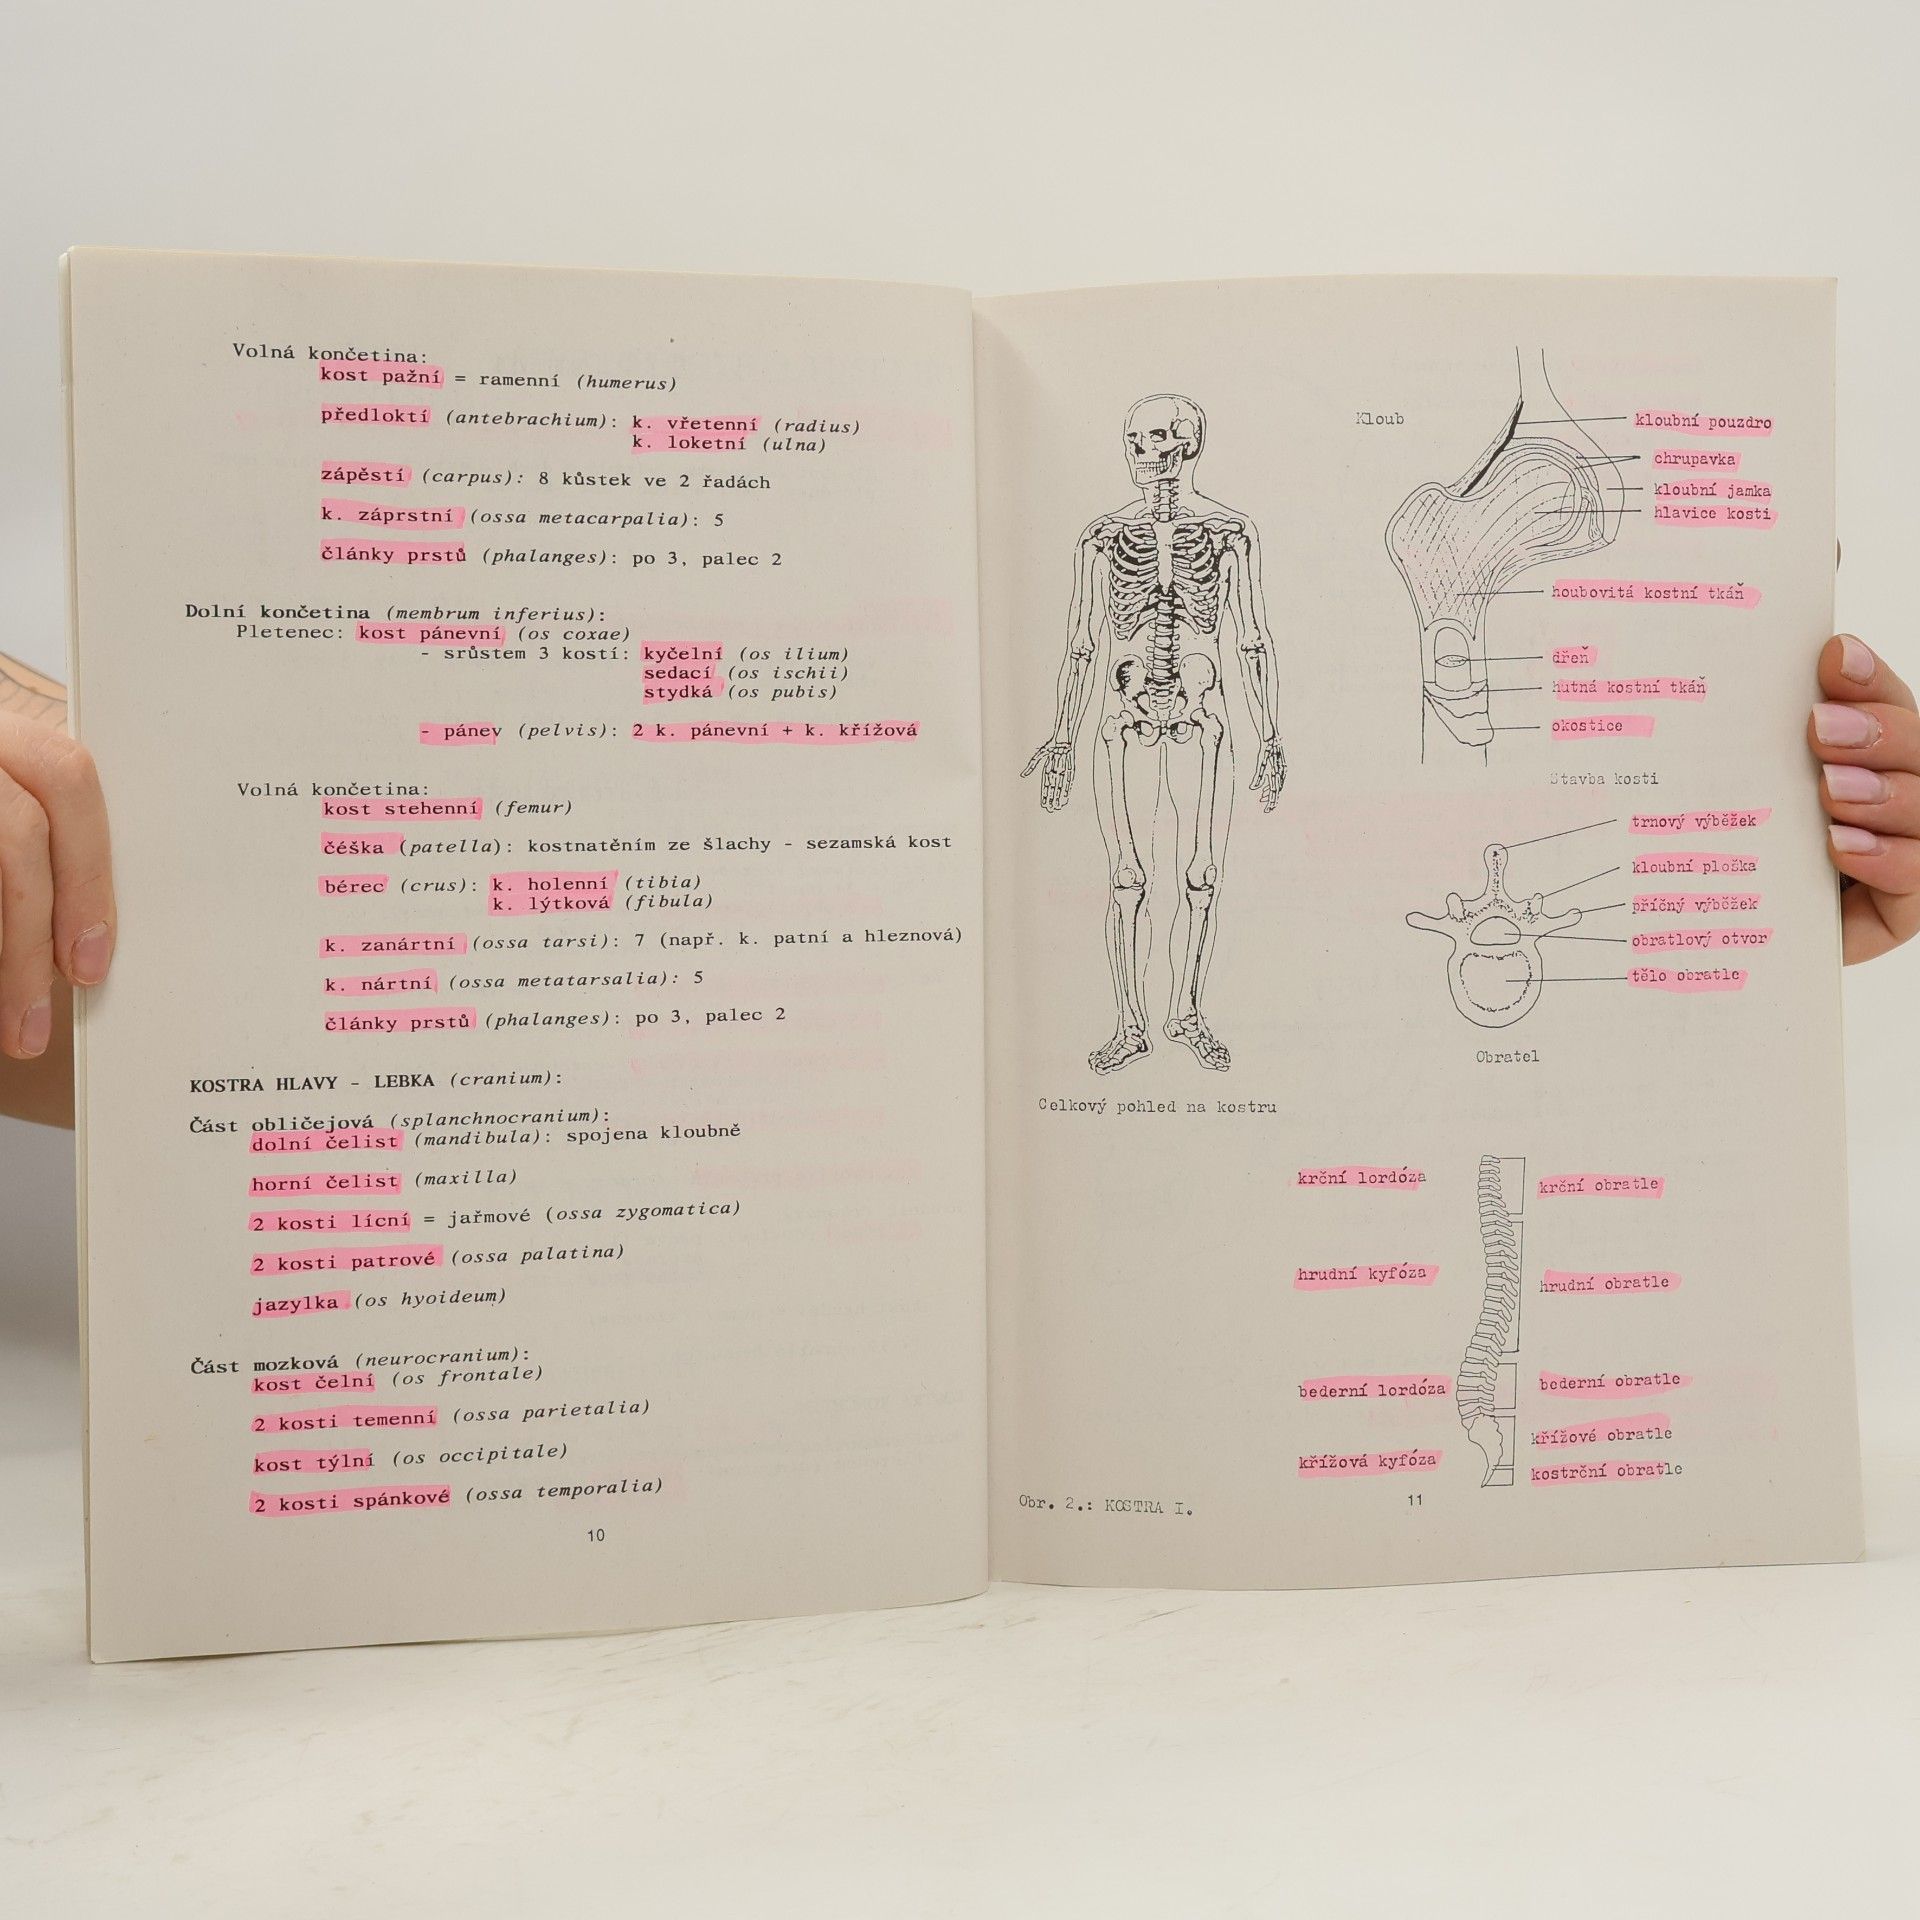 Volná končetina:
kost pažní = ramenní (humerus)
předloktí (antebrachium): k. vřetenní (radius)
k. loketní (ulna)
zápěstí (carpus): 8 kůstek ve 2 řadách
k. záprstní (ossa metacarpalia): 5
články prstů (phalanges): po 3, palec 2
Dolní končetina (membrum inferius):
Pletenec: kost pánevní (os coxae)
- srůstem 3 kostí: kyčelní (os ilium)
sedací (os ischii)
stydká (os pubis)
- pánev (pelvis): 2 k. pánevní + k. křížová
Volná končetina:
kost stehenní (femur)
čéška (patella): kostnatěním ze šlachy - sezamská kost
bérec (crus): k. holenní (tibia)
k. lýtková (fibula)
k. zanártní (ossa tarsi): 7 (např. k. patní a hleznová)
k. nártní (ossa metatarsalia): 5
články prstů (phalanges): po 3, palec 2
KOSTRA HLAVY - LEBKA (cranium):
Část obličejová (splanchnocranium):
dolní čelist (mandibula): spojena kloubně
horní čelist (maxilla)
2 kosti lícní = jařmové (ossa zygomatica)
2 kosti patrové (ossa palatina)
jazylka (os hyoideum)
Část mozková (neurocranium):
kost čelní (os frontale)
2 kosti temenní (ossa parietalia)
kost týlní (os occipitale)
2 kosti spánkové (ossa temporalia)
10
Kloub
kloubní pouzdro
chrupavka
kloubní jamka
hlavice kosti
houbovitá kostní tkáň
dřeň
hutná kostní tkáň
okostice
Stavba kosti
trnový výběžek
kloubní ploška
příčný výběžek
obratlový otvor
tělo obratle
Obratel
Celkový pohled na kostru
krční lordóza
krční obratle
hrudní kyfóza
hrudní obratle
bederní lordóza
bederní obratle
křížové obratle
křížová kyfóza
kostrční obratle
Obr. 2.: KOSTRA I.
11